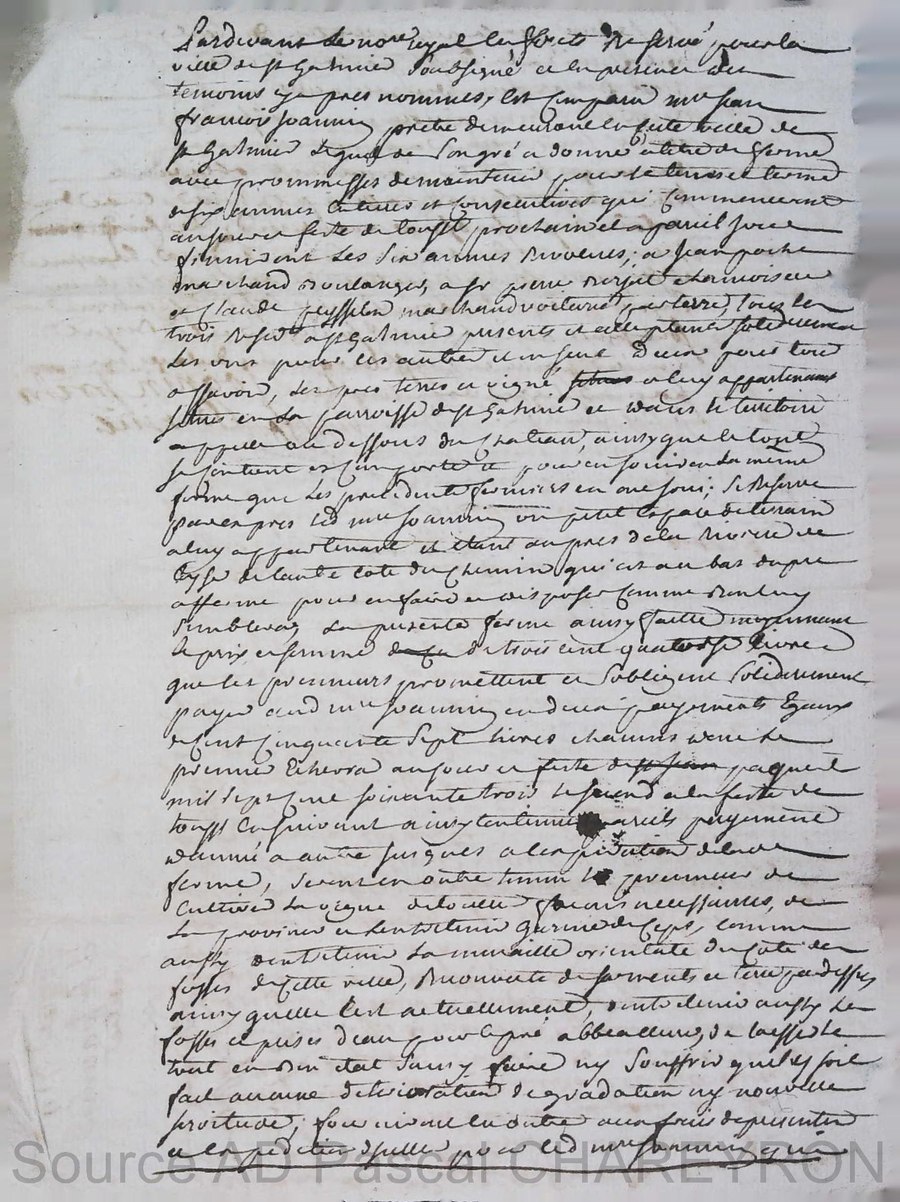 Pardevant le nore royal es forets reservé pour la
ville de st Galmier soussigné et en presence des
temoins cy apres nommés, est comparu mre jean
francois joannin pretre demeurant en cette ville de
st Galmier lequel de son gré a donné a titre de ferme
avec prommesses de maintenir pour le tems et terme
de six années entieres et consecutives qui commenceront
au jour et feste de touss.t prochain et a pareil jour
finiront les six années revolues; a jean
marchand boulanger, a sr pierre chamoiseur
et Claude marchand voiturier par terre, tous les
trois resid.ts a st Galmier presents et acceptants solidairement
les uns pour les autres et un seul d'eux pour tous
assavoir, les pres terres et vigne a luy appartenants
situés en la parroisse de st Galmier et dans le territoire
appellé au dessous du chateau, ainsy que le tout
se contient et comporte et pour en jouir en la même
forme que les precedents fermiers en ont joui; se reserve
par exprès led mre joannin un petit espace de terrain
a luy appartenant et etant aupres de la riviere de
de l'autre coté du chemin qui est au bas du pre
affermé pour en faire et disposer comme bon luy
semblera, la presente ferme ainsy faitte moyennant
le prix et somme de trois cent quatorze livres
que les preneurs promettent et s'obligent solidairement
payer aud mre joannin en deux payements egaux
de cent cinquante sept livres chacuns dont le
premier echerra au jour et feste de st jean paques
mil sept cent soixante trois le second a la feste de
touss.t en suivant ainsy continuer pareils payements
d'année a autre jusques a l'expiration de lad
ferme, seront en outre tenus les preneurs de
cultiver la vigne de toutte façons necessaires, de
la provigner et l'entretenir garnie de ceps, comme
aussy d'entretenir la muraille orientale du coté des
fossés de cette ville, recouverte de sarments et terre par dessus
ainsy quelle l'est actuellement, d'entretenir aussy les
fossés et prises d'eau pour le pré abbeallures, de laisser le
tout en bon etat sans y faire ny souffrir qu'il y soit
fait aucune deterioration degradation ny nouvelle
servitude; fourniront en outre aux frais de presentes
et expedition d'icelle pour led mre joannin qui
Source AD Pascal CHAREYRON